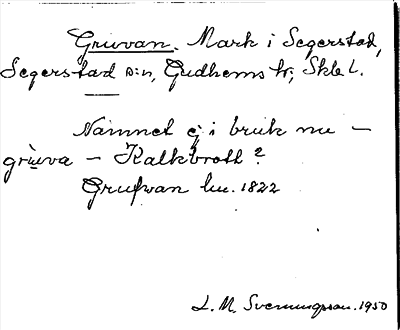 Gruvan. Mark i Segerstad,
Segerstad s:n, Gudhems hd; Skbl.
Namnet ej i bruk nu –
grùva – Kalkbrott?
Grufwan hu. 1822
L. M. Svenungsson. 1950